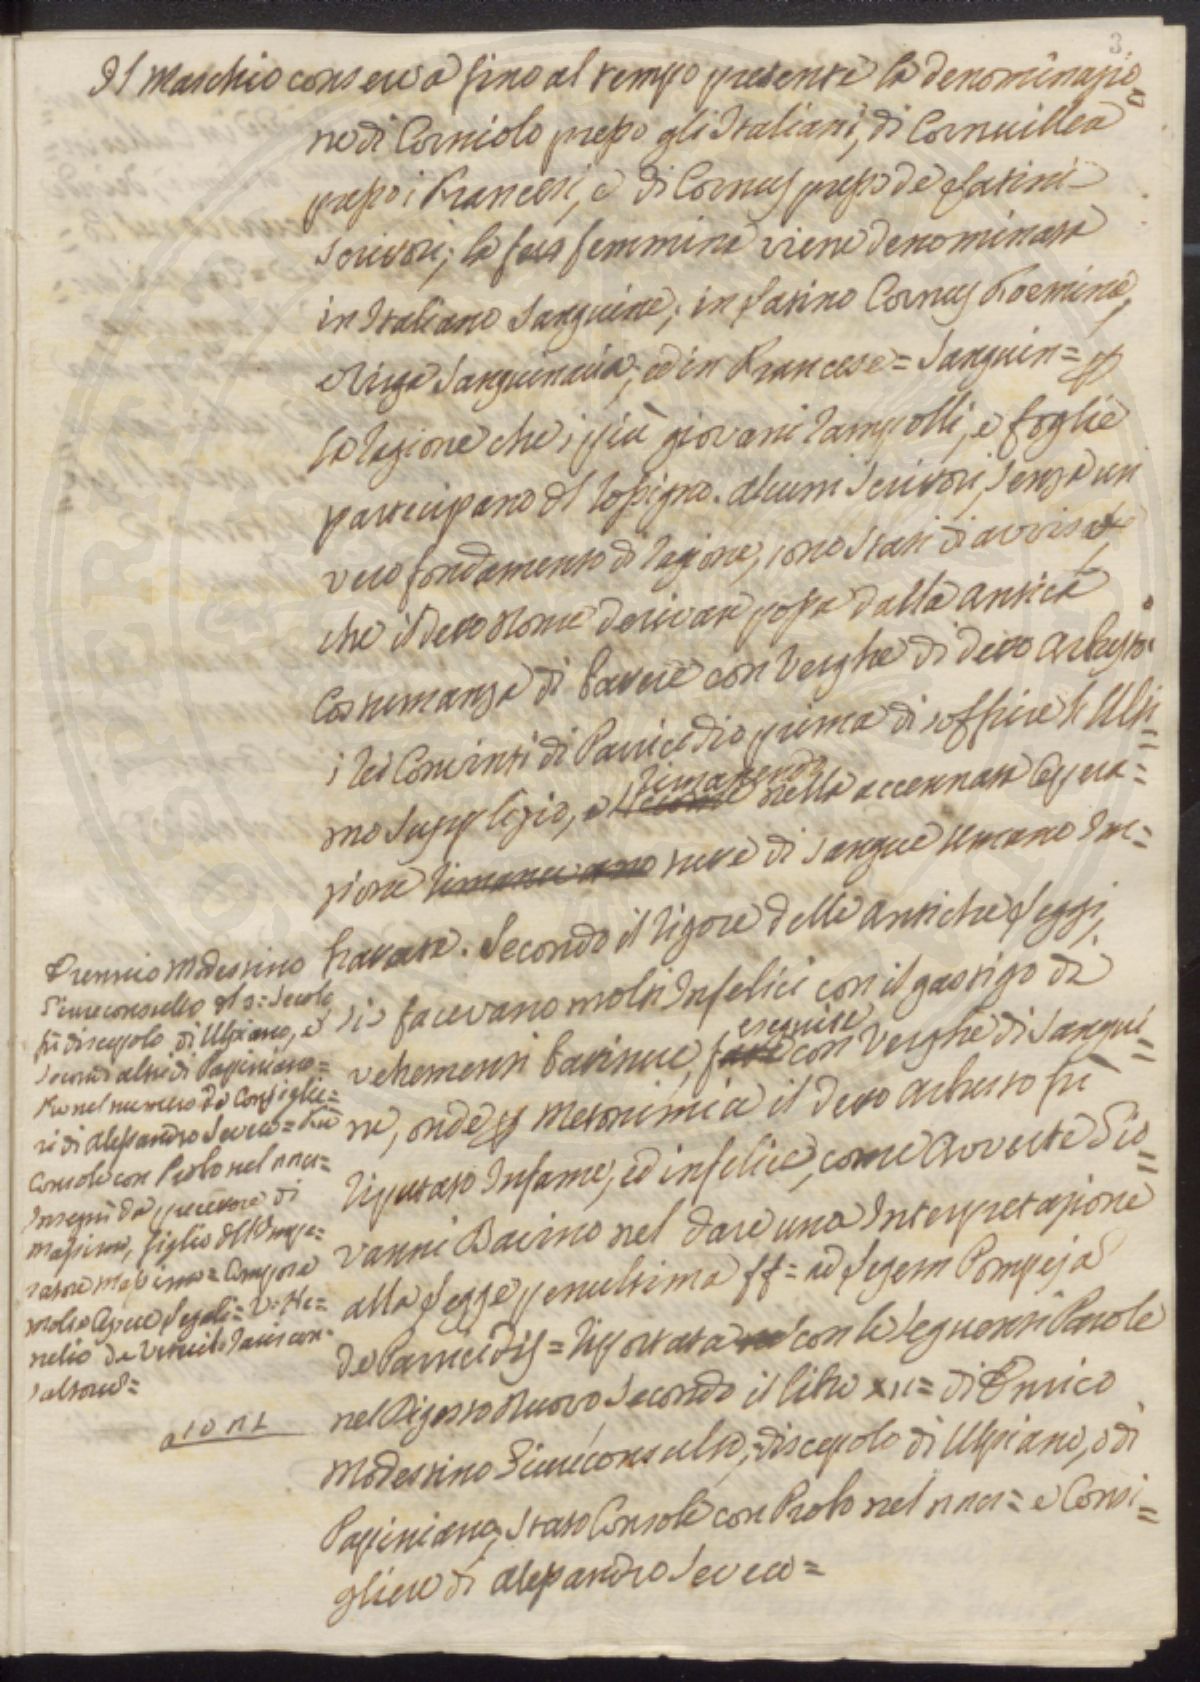 3
Il Maschio conserva fino al tempo presente la denominazio=
ne di Corniolo presso gli Italiani, di Cornuillea
presso i Francesi, e di Cornus presso de Latini
scrittori; la femmina viene denominata
in Italiano Sanguine; in Latino Cornus Foemina,
e Virga Sanguinaria, ed in Francese = Sanguin =
la ragione che i più giovani rampolli, e foglie
partecipano del rossigno. Alcuni scrittori, senza un
vero fondamento di ragione, sono stati di avviso,
che il detto Nome derivar possa dalla antica
Costumanza di battere con Verghe di detto Arbusto
i rei Convinti di Parricidio prima di soffrire l'Ulti=
mo Supplizio, e rimanendo nella accennata Opera=
zione rimanevano neve di sangue umano Im=
brattate. Secondo il rigore delle antiche Leggi,
si facevano molti Infelici con il gastigo di
vehementi battiture, fatte eseguite con Verghe di Sangui=
ne, onde Metonimia il detto Arbusto fù
riputato Infame, ed infelice, come avverte Gio=
vanni Bavino nel dare una Interpretazione
alla Legge penultima ff = ad Legem Pompeja
de Parricidis = riportata con le seguenti Parole
nel Digesto Nuovo Secondo il libro XII = di Enrico
Modestino Giureconsulto, discepolo di Ulpiano, o di
Papiniano, stato Console con Probo nel = e Consi=
gliere di Alessandro Severo =
Erennio Modestino
Giureconsulto del 3: Secolo
fù discepolo di Ulpiano, e
secondo altri di Papiniano =
Fu nel numero de Consiglie=
ri di Alessandro Severo = Fù
Console con Probo nel
Insegnò da precettore di
Massimo, figlio dell'Impe=
ratore Massimo = Compose
molte Opere Legali = V: He=
nelio de Veteris Juris con=
sultorum =